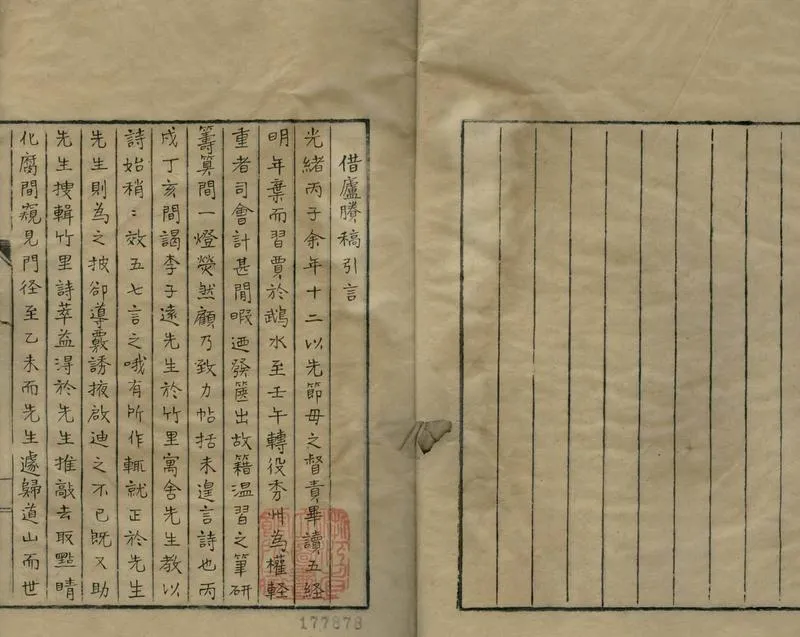 借廬賸稿引言
光緒丙子余年十二以先節母之督責畢讀五經
明年棄而習賈於鵡水至壬午轉役秀州為權輕
重者司會計甚閒暇迺發篋出故籍溫習之筆研
籌算間一燈熒然顧乃致力帖括未遑言詩也丙
戌丁亥間謁李子遠先生於竹里寓舍先生教以
詩始稍〻效五七言之哦有所作輒就正於先生
先生則為之披卻導窾誘掖啟迪之不已既又助
先生搜輯竹里詩萃益淂於先生推敲去取點睛
化腐間窺見門径至乙未而先生遽歸道山而世
177878